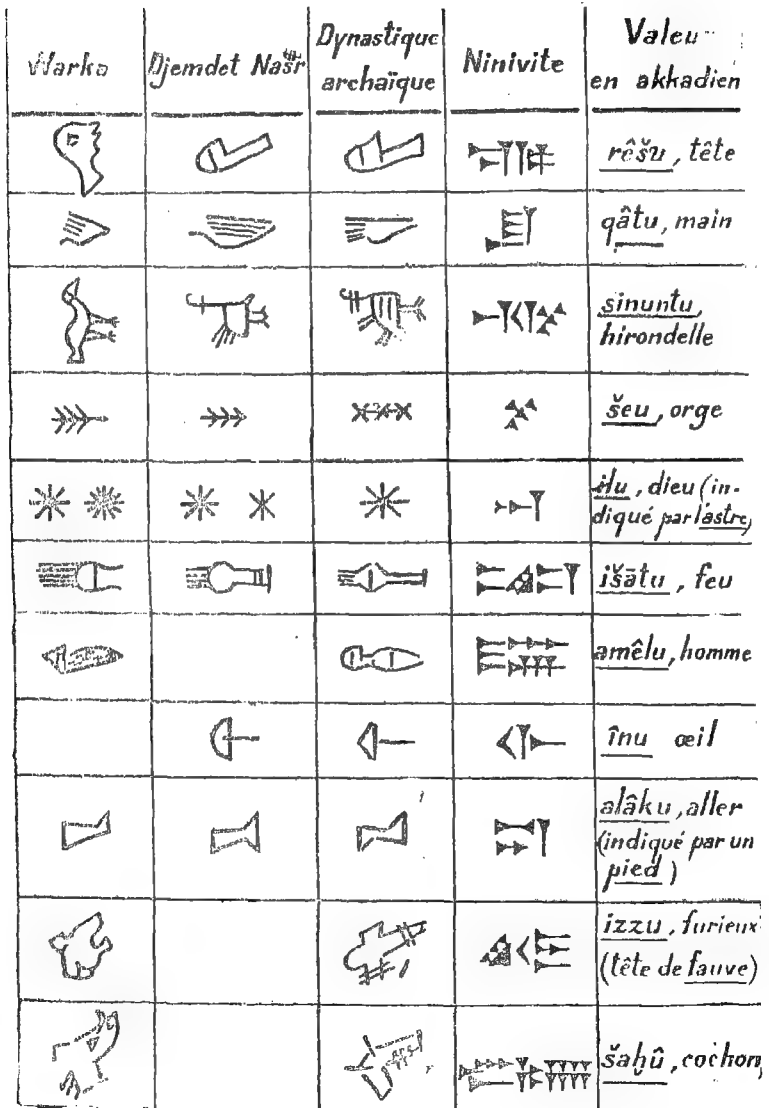 Warka
Djemdet Našr
Dynastique
archaïque
Ninivite
Valeu
en akkadien
rêšu, tête
qâtu, main
sinuntu,
hirondelle
šeu, orge
ilu, dieu (in-
diqué par l'astre)
išātu, feu
amêlu, homme
înu œil
alâku, aller
(indiqué par un
pied)
izzu, furieux
(tête de fauve)
šaḫû, cochon,